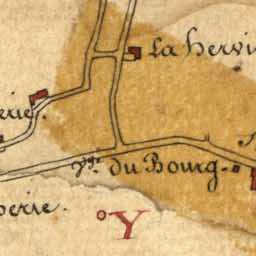 La hervi
erie.
du Bourg.
perie.
Y